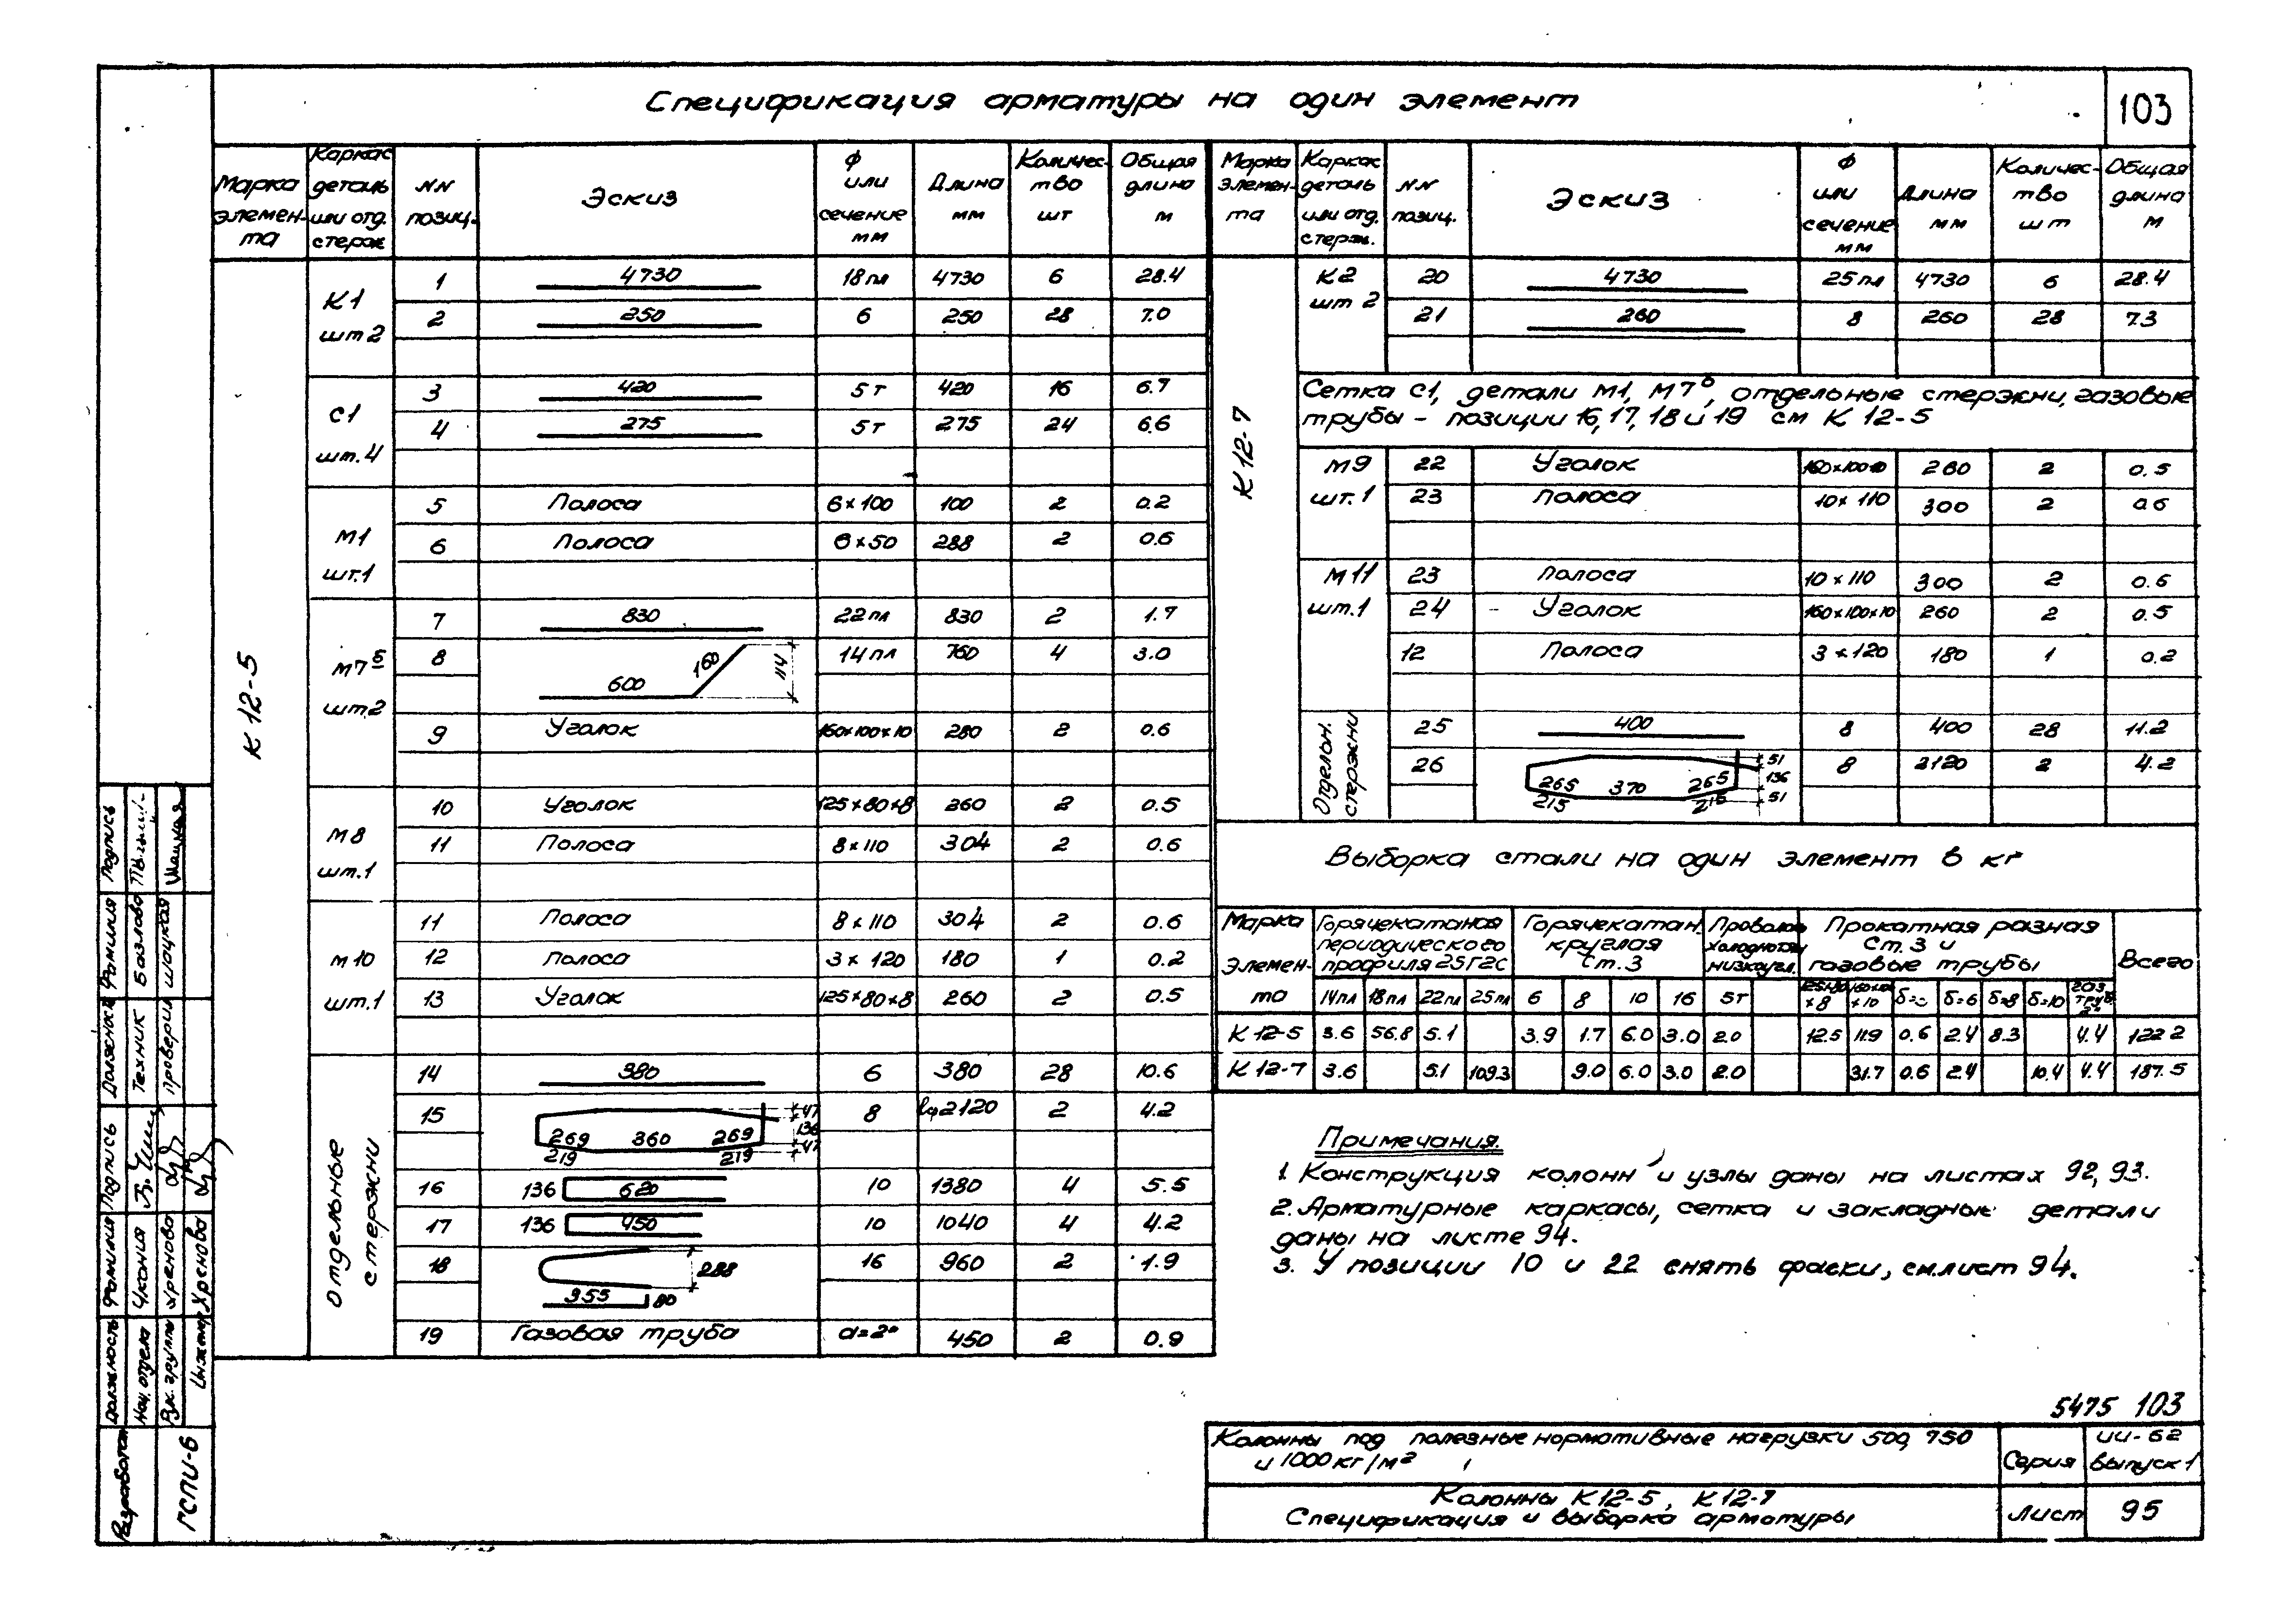 Спецификация арматуры на один элемент
103
Марка элемен-та | Каркас деталь или отд. стерж | NN позиц. | Эскиз | Ф или сечение мм | Длина мм | Количес-тво шт | Общая длина м
К 12-5
К1 шт 2 | 1 | 4730 | 18пл | 4730 | 6 | 28.4
2 | 250 | 6 | 250 | 28 | 7.0
С1 шт.4 | 3 | 420 | 5т | 420 | 16 | 6.7
4 | 275 | 5т | 275 | 24 | 6.6
М1 шт.1 | 5 | Полоса | 6×100 | 100 | 2 | 0.2
6 | Полоса | 6×50 | 288 | 2 | 0.6
М7б шт.2 | 7 | 830 | 22пл | 830 | 2 | 1.7
8 | 600 160 114 | 14пл | 760 | 4 | 3.0
9 | Уголок | 160×100×10 | 280 | 2 | 0.6
М8 шт.1 | 10 | Уголок | 125×80×8 | 260 | 2 | 0.5
11 | Полоса | 8×110 | 304 | 2 | 0.6
М10 шт.1 | 11 | Полоса | 8×110 | 304 | 2 | 0.6
12 | Полоса | 3×120 | 180 | 1 | 0.2
13 | Уголок | 125×80×8 | 260 | 2 | 0.5
Отдельные стержни | 14 | 380 | 6 | 380 | 28 | 10.6
15 | 269 360 269 219 219 47 136 47 | 8 | lср2120 | 2 | 4.2
16 | 136 620 | 10 | 1380 | 4 | 5.5
17 | 136 450 | 10 | 1040 | 4 | 4.2
18 | 288 355 80 | 16 | 960 | 2 | 1.9
19 | Газовая труба | d=2" | 450 | 2 | 0.9
Марка элемен-та | Каркас деталь или отд. стерж. | NN позиц. | Эскиз | Ф или сечение мм | Длина мм | Количес-тво шт | Общая длина м
К 12-7
К2 шт 2 | 20 | 4730 | 25пл | 4730 | 6 | 28.4
21 | 260 | 8 | 260 | 28 | 7.3
Сетка С1, детали М1, М7б, отдельные стержни, газовые
трубы – позиции 16, 17, 18 и 19 см К 12-5
М9 шт.1 | 22 | Уголок | 160×100×10 | 260 | 2 | 0.5
23 | Полоса | 10×110 | 300 | 2 | 0.6
М11 шт.1 | 23 | Полоса | 10×110 | 300 | 2 | 0.6
24 | Уголок | 160×100×10 | 260 | 2 | 0.5
12 | Полоса | 3×120 | 180 | 1 | 0.2
Отдельн. стержни | 25 | 400 | 8 | 400 | 28 | 11.2
26 | 265 370 265 215 215 51 136 51 | 8 | 2120 | 2 | 4.2
Выборка стали на один элемент в кг
Марка Элемен-та | Горячекатаная периодического профиля 25Г2С | Горячекатан. круглая Ст.3 | Проволока холоднотян низкоугл. | Прокатная разная Ст.3 и газовые трубы | Всего
14пл | 18пл | 22пл | 25пл | 6 | 8 | 10 | 16 | 5т | 125×80×8 | 160×100×10 | δ=3 | δ=6 | δ=8 | δ=10 | газ. труб 2"
К 12-5 | 3.6 | 56.8 | 5.1 | | 3.9 | 1.7 | 6.0 | 3.0 | 2.0 | | 12.5 | 11.9 | 0.6 | 2.4 | 8.3 | | 4.4 | 122.2
К 12-7 | 3.6 | | 5.1 | 109.3 | | 9.0 | 6.0 | 3.0 | 2.0 | | | 31.7 | 0.6 | 2.4 | | 10.4 | 4.4 | 187.5
Примечания.
1. Конструкция колонн и узлы даны на листах 92, 93.
2. Арматурные каркасы, сетка и закладные детали
даны на листе 94.
3. У позиции 10 и 22 снять фаски, см.лист 94.
5475 103
Колонны под полезные нормативные нагрузки 500, 750
и 1000 кг/м²
Серия
ИИ-62
выпуск 1
Колонны К12-5, К12-7
Спецификация и выборка арматуры
Лист
95
Разработал
ГСПИ-6
Должность Фамилия Подпись
Нач. отдела Чкония
Рук. группы Хренова
Инженер Хренова
Должность Фамилия Подпись
Техник Базлова
проверил Шацкая Шацкая